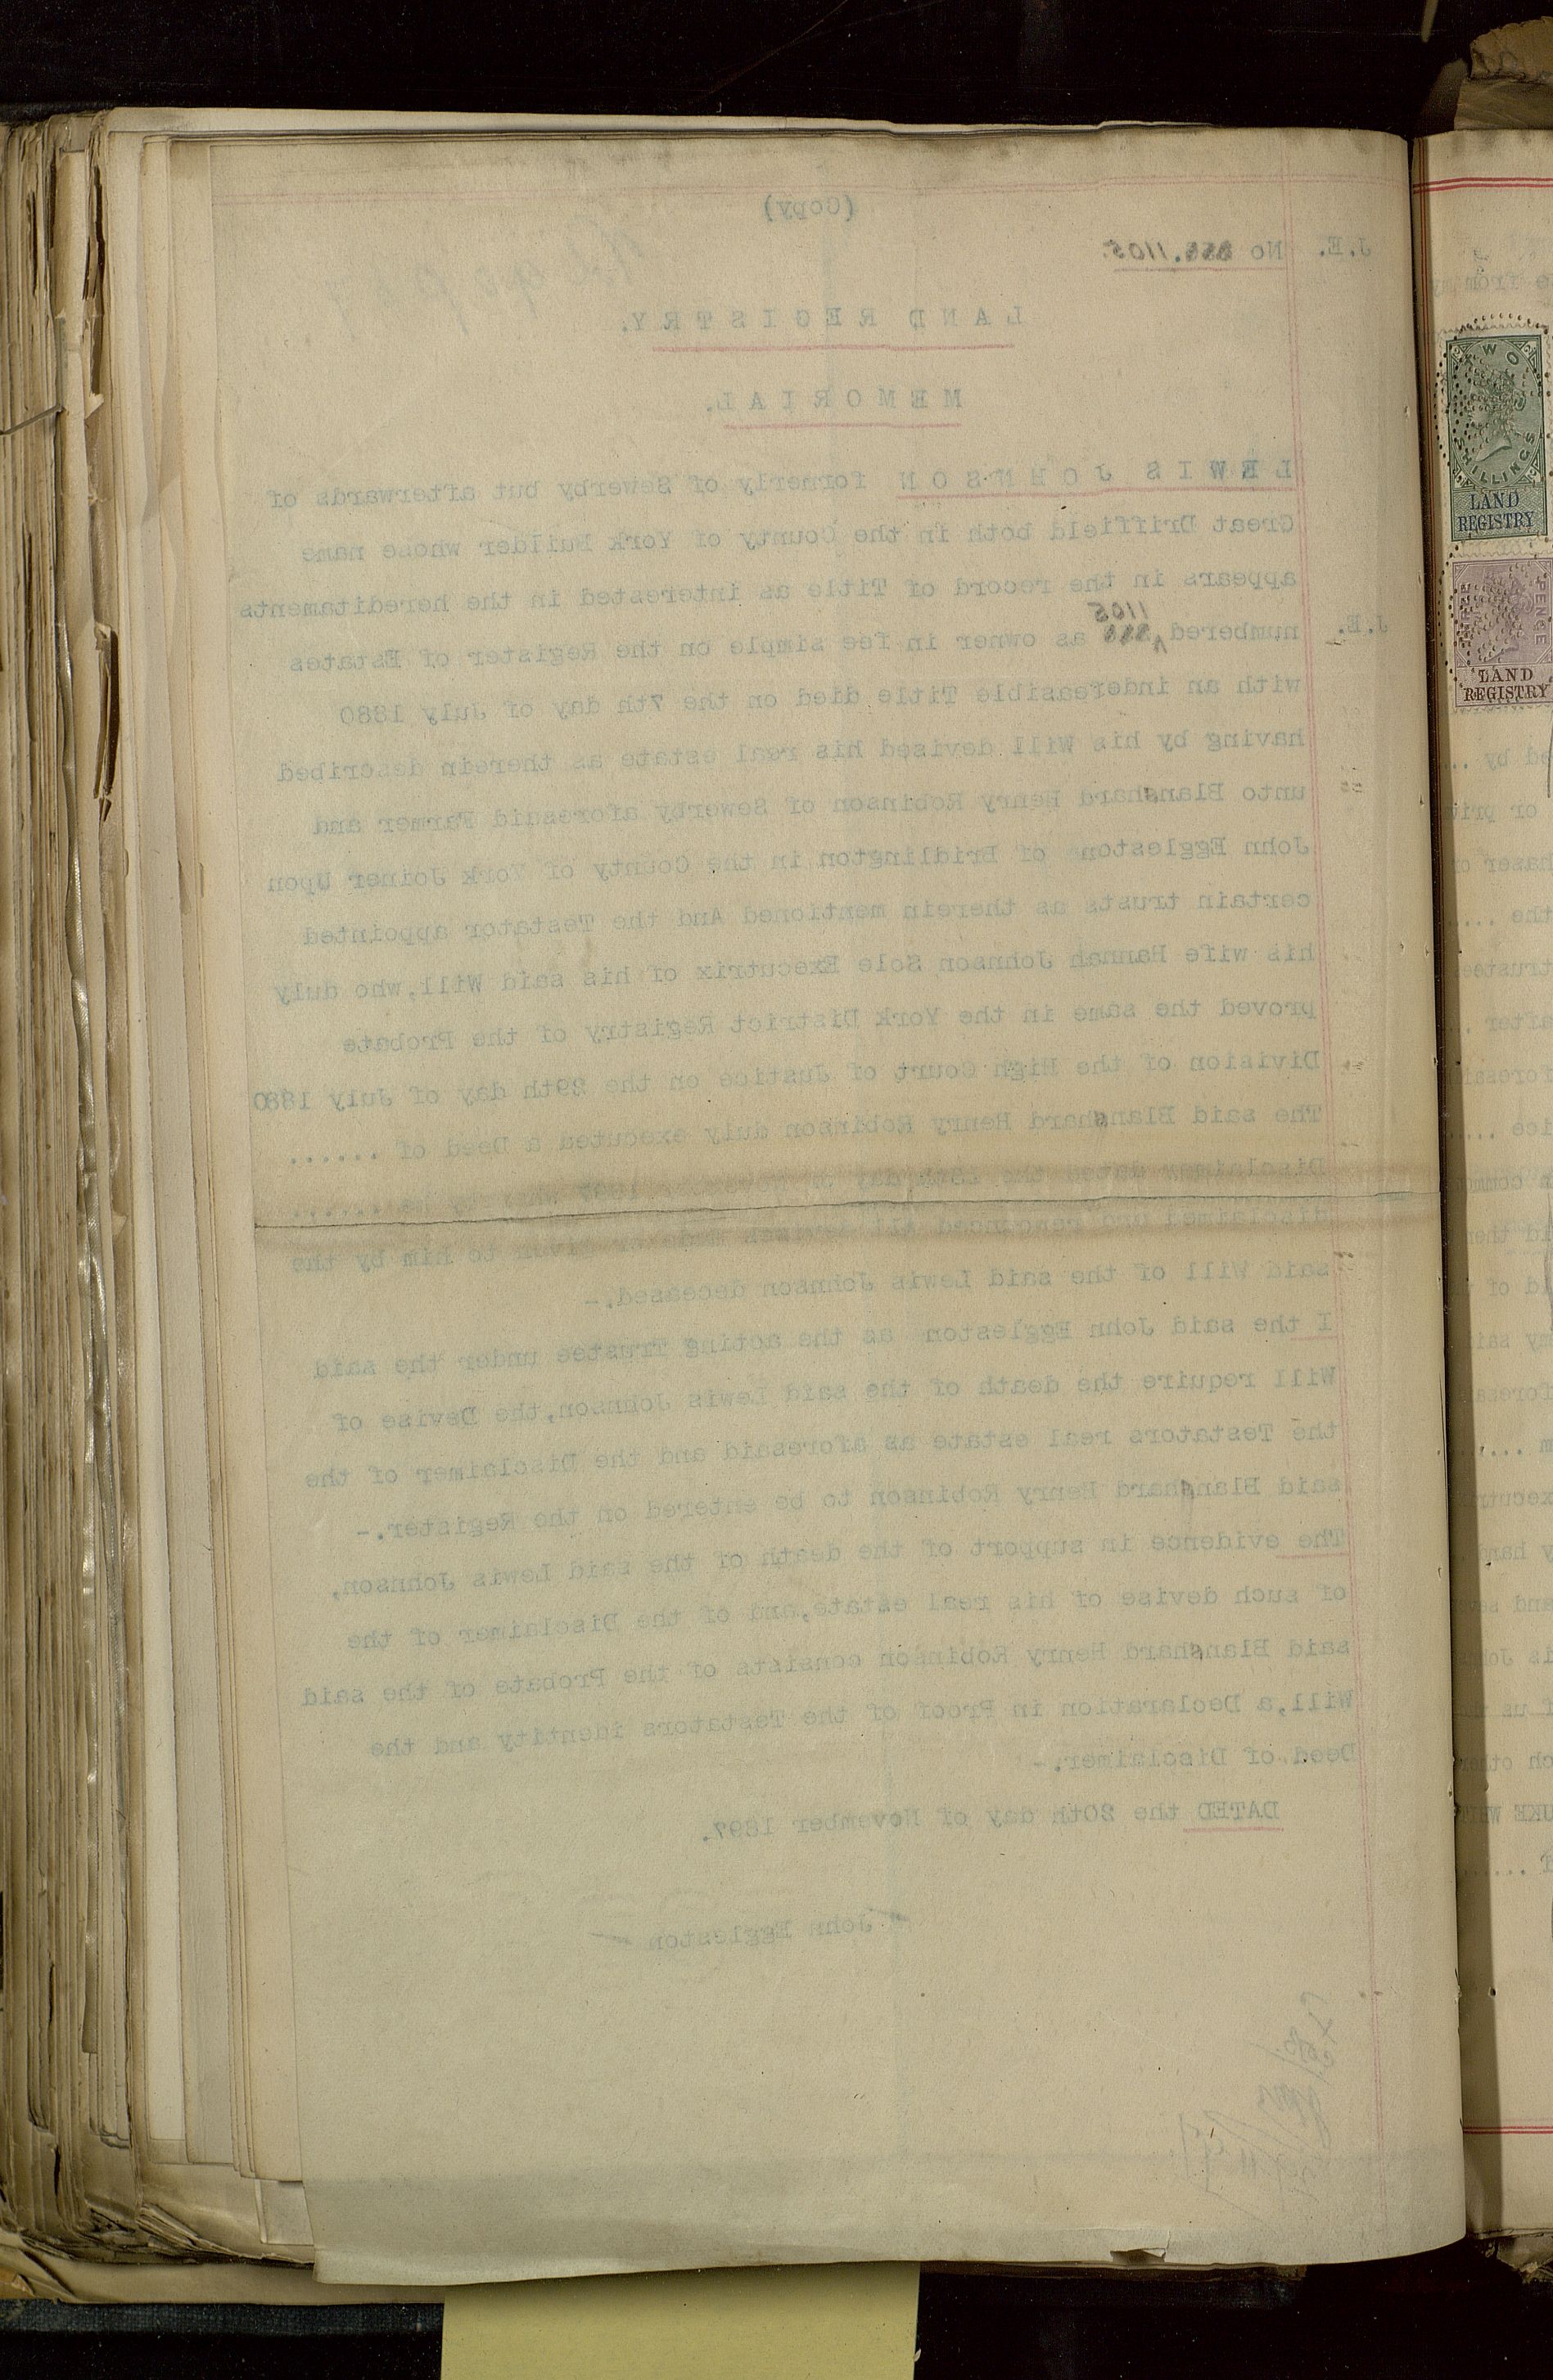 (Copy)
J.E. No 888.1105.
LAND REGISTRY.
MEMORIAL.
LEWIS JOHNSON formerly of Sewerby but afterwards of
Great Driffield both in the County of York Builder whose name
appears in the record of Title as interested in the hereditaments
1105
J.E. numbered 888 as owner in fee simple on the Register of Estates
with an indefeasible Title died on the 7th day of July 1880
having by his Will devised his real estate as therein described
unto Blanshard Henry Robinson of Sewerby aforesaid Farmer and
John Eggleston of Bridlington in the County of York Joiner Upon
certain trusts as therein mentioned And the Testator appointed
his wife Hannah Johnson Sole Executrix of his said Will,who duly
proved the same in the York District Registry of the Probate
Division of the High Court of Justice on the 29th day of July 1880
The said Blanshard Henry Robinson duly executed a Deed of ......
Disclaimer dated the day of 1897
disclaimed and renounced All to him by the
said Will of the said Lewis Johnson deceased.-
I the said John Eggleston as the acting Trustee under the said
Will require the death of the said Lewis Johnson,the Devise of
the Testators real estate as aforesaid and the Disclaimer of the
said Blanshard Henry Robinson to be entered on the Register.-
The evidence in support of the death of the said Lewis Johnson,
of such devise of his real estate,and of the Disclaimer of the
said Blanshard Henry Robinson consists of the Probate of the said
Will,a Declaration in Proof of the Testators identity and the
Deed of Disclaimer.-
DATED the 20th day of November 1897.
John Eggleston
TWO SHILLINGS
LAND
REGISTRY
PENCE
LAND
REGISTRY